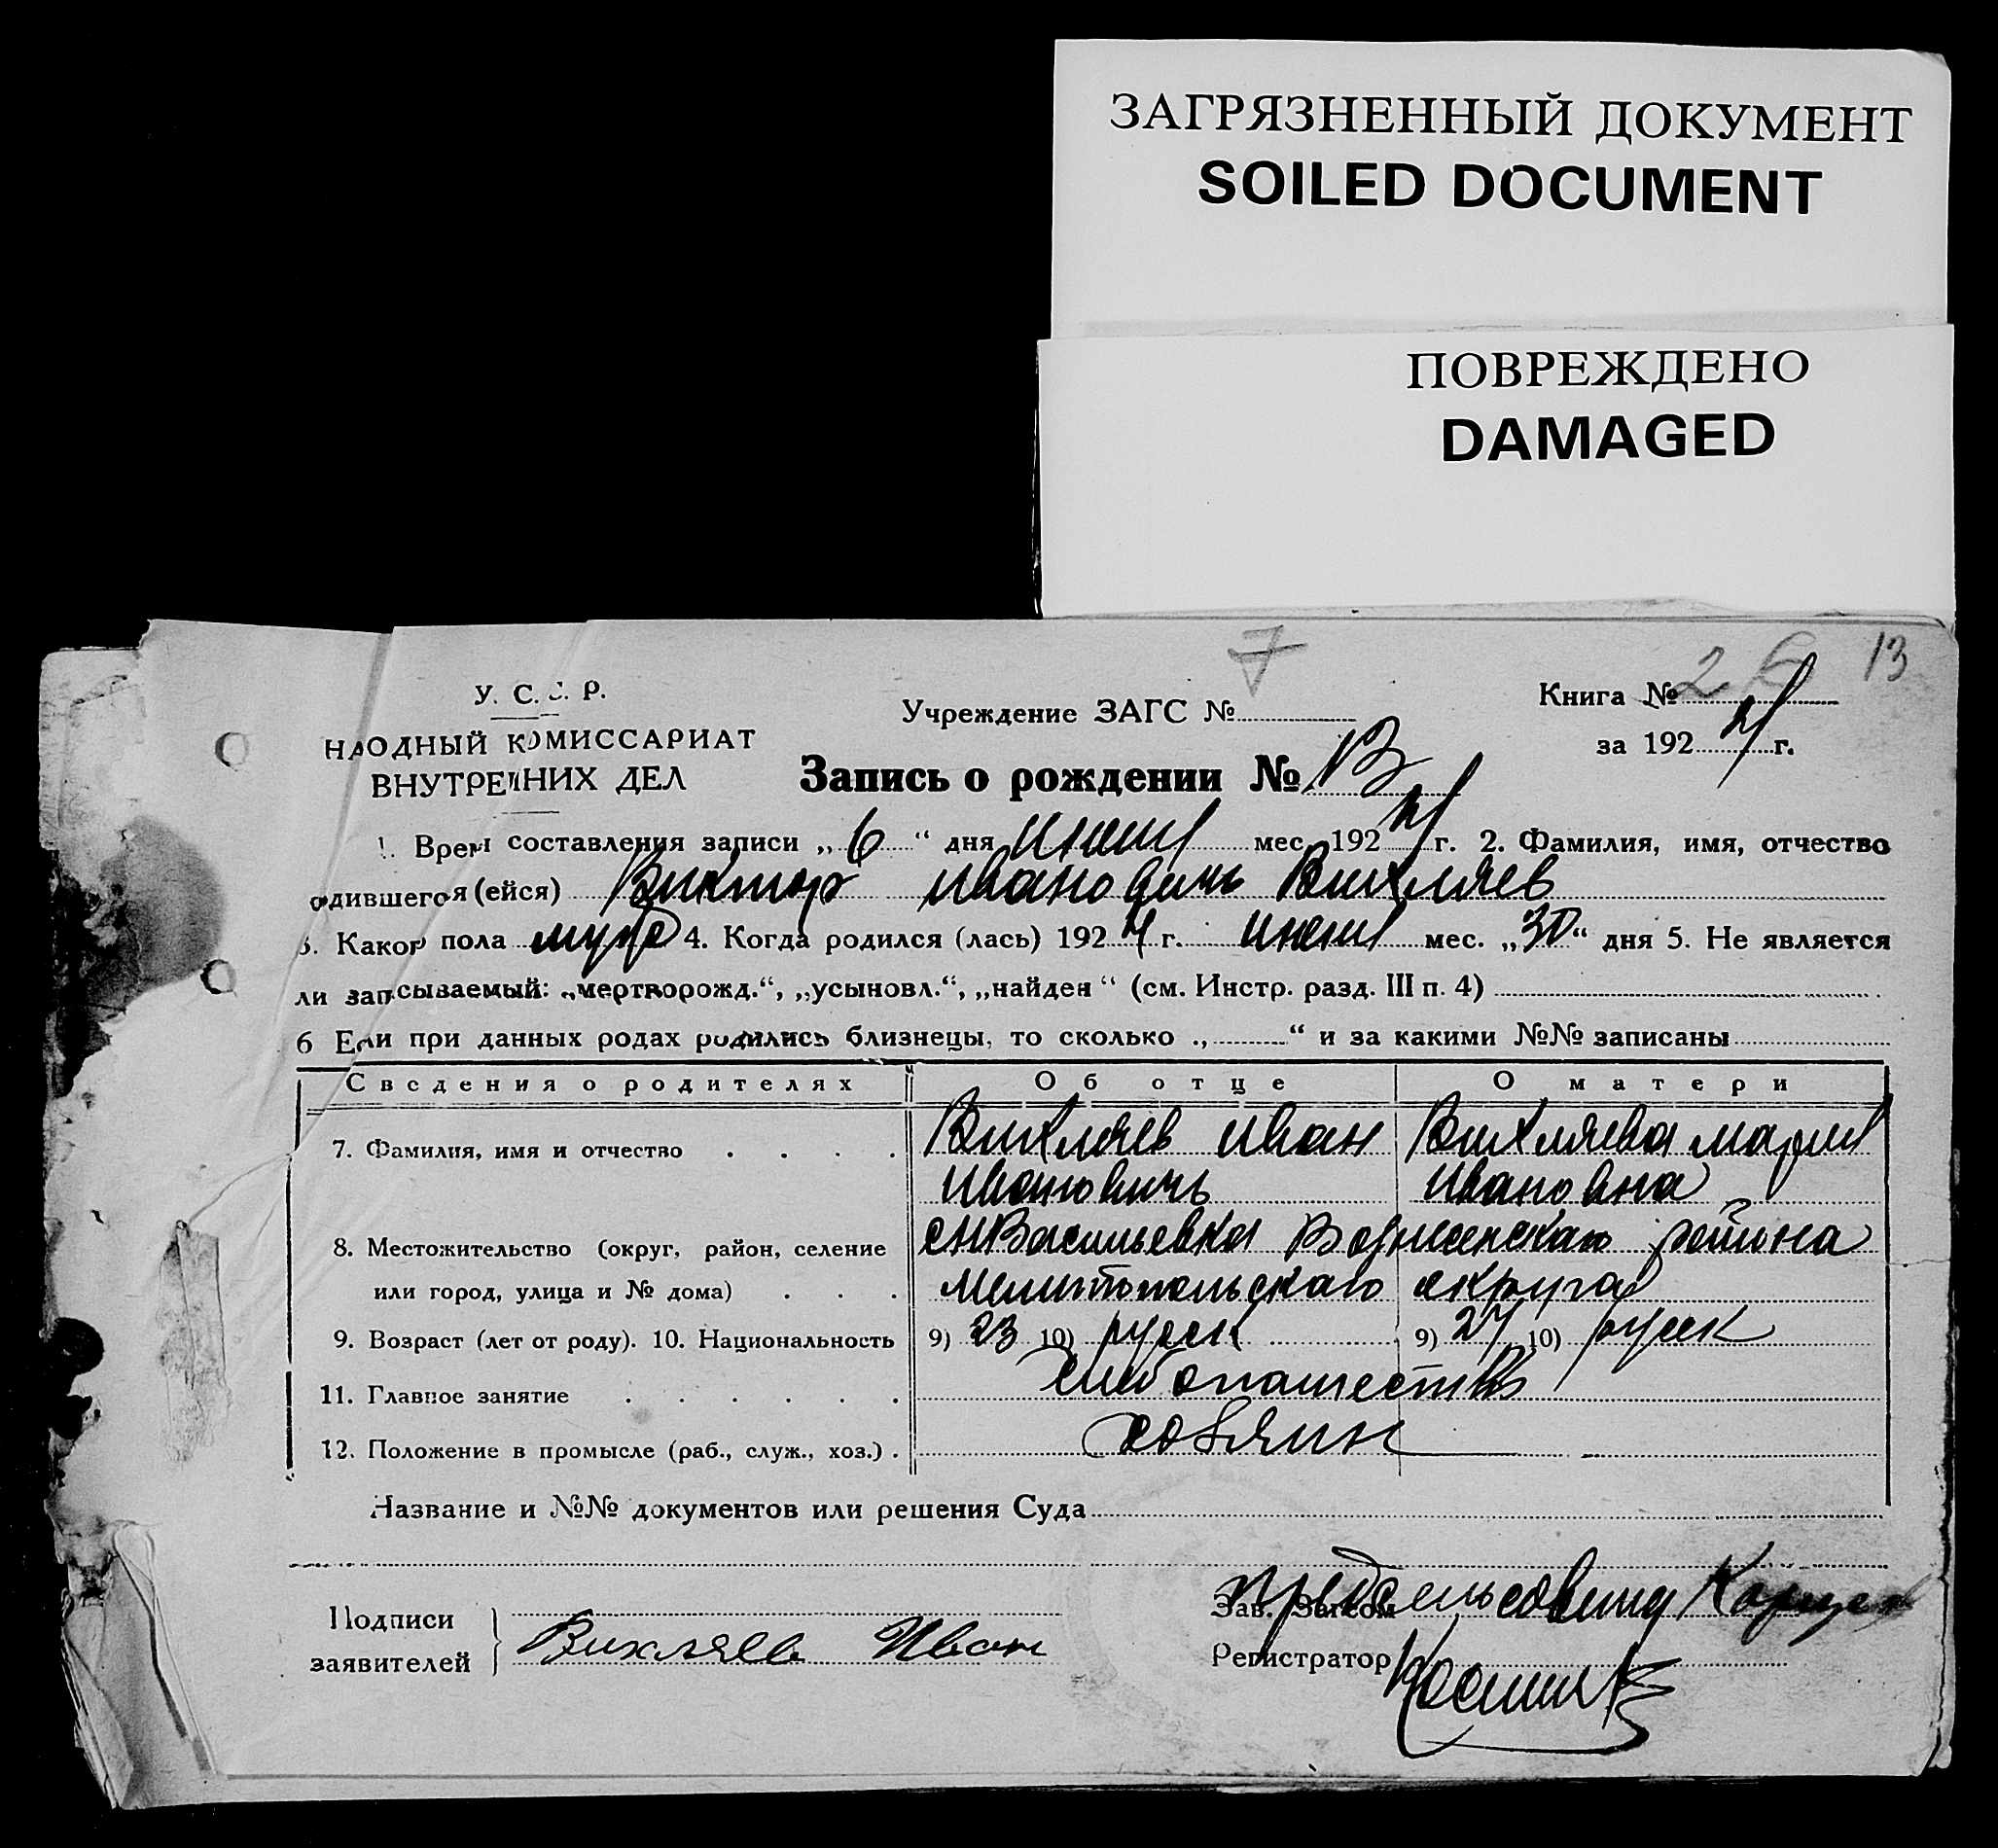 ЗАГРЯЗНЕННЫЙ ДОКУМЕНТ
SOILED DOCUMENT
ПОВРЕЖДЕНО
DAMAGED
13
У. С. С. Р.
Учреждение ЗАГС № 7
Книга № 2
НАОДНЫЙ КОМИССАРИАТ
за 1924 г.
ВНУТРЕННИХ ДЕЛ
Запись о рождении № 13
1. Время составления записи „6“ дня июля мес. 1924 г. 2. Фамилия, имя, отчество
одившегося (ейся) Виктор Ивановичь Вихляев
3. Какор пола муж 4. Когда родился (лась) 1924 г. июня мес. „30“ дня 5. Не является
ли записываемый: „мертворожд.“, „усыновл.“, „найден“ (см. Инстр. разд. III п. 4)
6 Если при данных родах родились близнецы, то сколько „ “ и за какими №№ записаны
Сведения о родителях Об отце О матери
7. Фамилия, имя и отчество Вихляев Иван Вихляева Мария
Ивановичь Ивановна
8. Местожительство (округ, район, селение Васильевка района
или город, улица и № дома) Мелитопольскаго округа
9. Возраст (лет от роду). 10. Национальность 9) 23 10) руск 9) 24 10) руск
11. Главное занятие хлебопашество
12. Положение в промысле (раб., служ., хоз.) хозяин
Название и №№ документов или решения Суда
Зав. Загсом предсельсовета
Подписи
заявителей Вихляев Иван
Регистратор